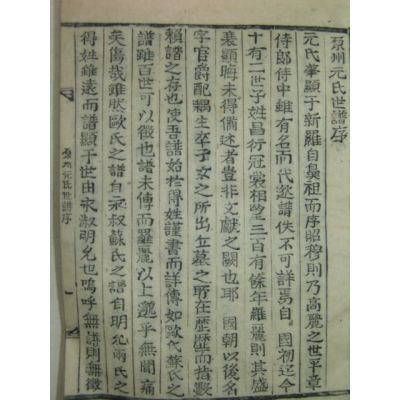 原州元氏世譜序
元氏華顯于新羅自鼻祖而序昭穆則乃高麗之世平章
侍郎侍中雖有名而代邈譜佚不可詳焉自 國初迄今
十有二世子姓昌衍冠裳相望三百有餘年羅麗則其盛
衰顯晦未得備述者豈非文獻之闕也耶 國朝以後名
字官爵配耦生卒子女之所出丘墓之所在歷歷而指數
賴譜之存也使吾譜始於得姓謹書而詳傳如歐氏蘇氏之
譜雖百世可以徵也譜未傳而羅麗以上邈乎無聞痛
矣傷哉雖然歐氏之譜自永叔蘇氏之譜自明允兩氏之
得姓雖遠而譜顯于世由永叔明允也嗚呼無譜則無徵
原州元氏世譜序 一